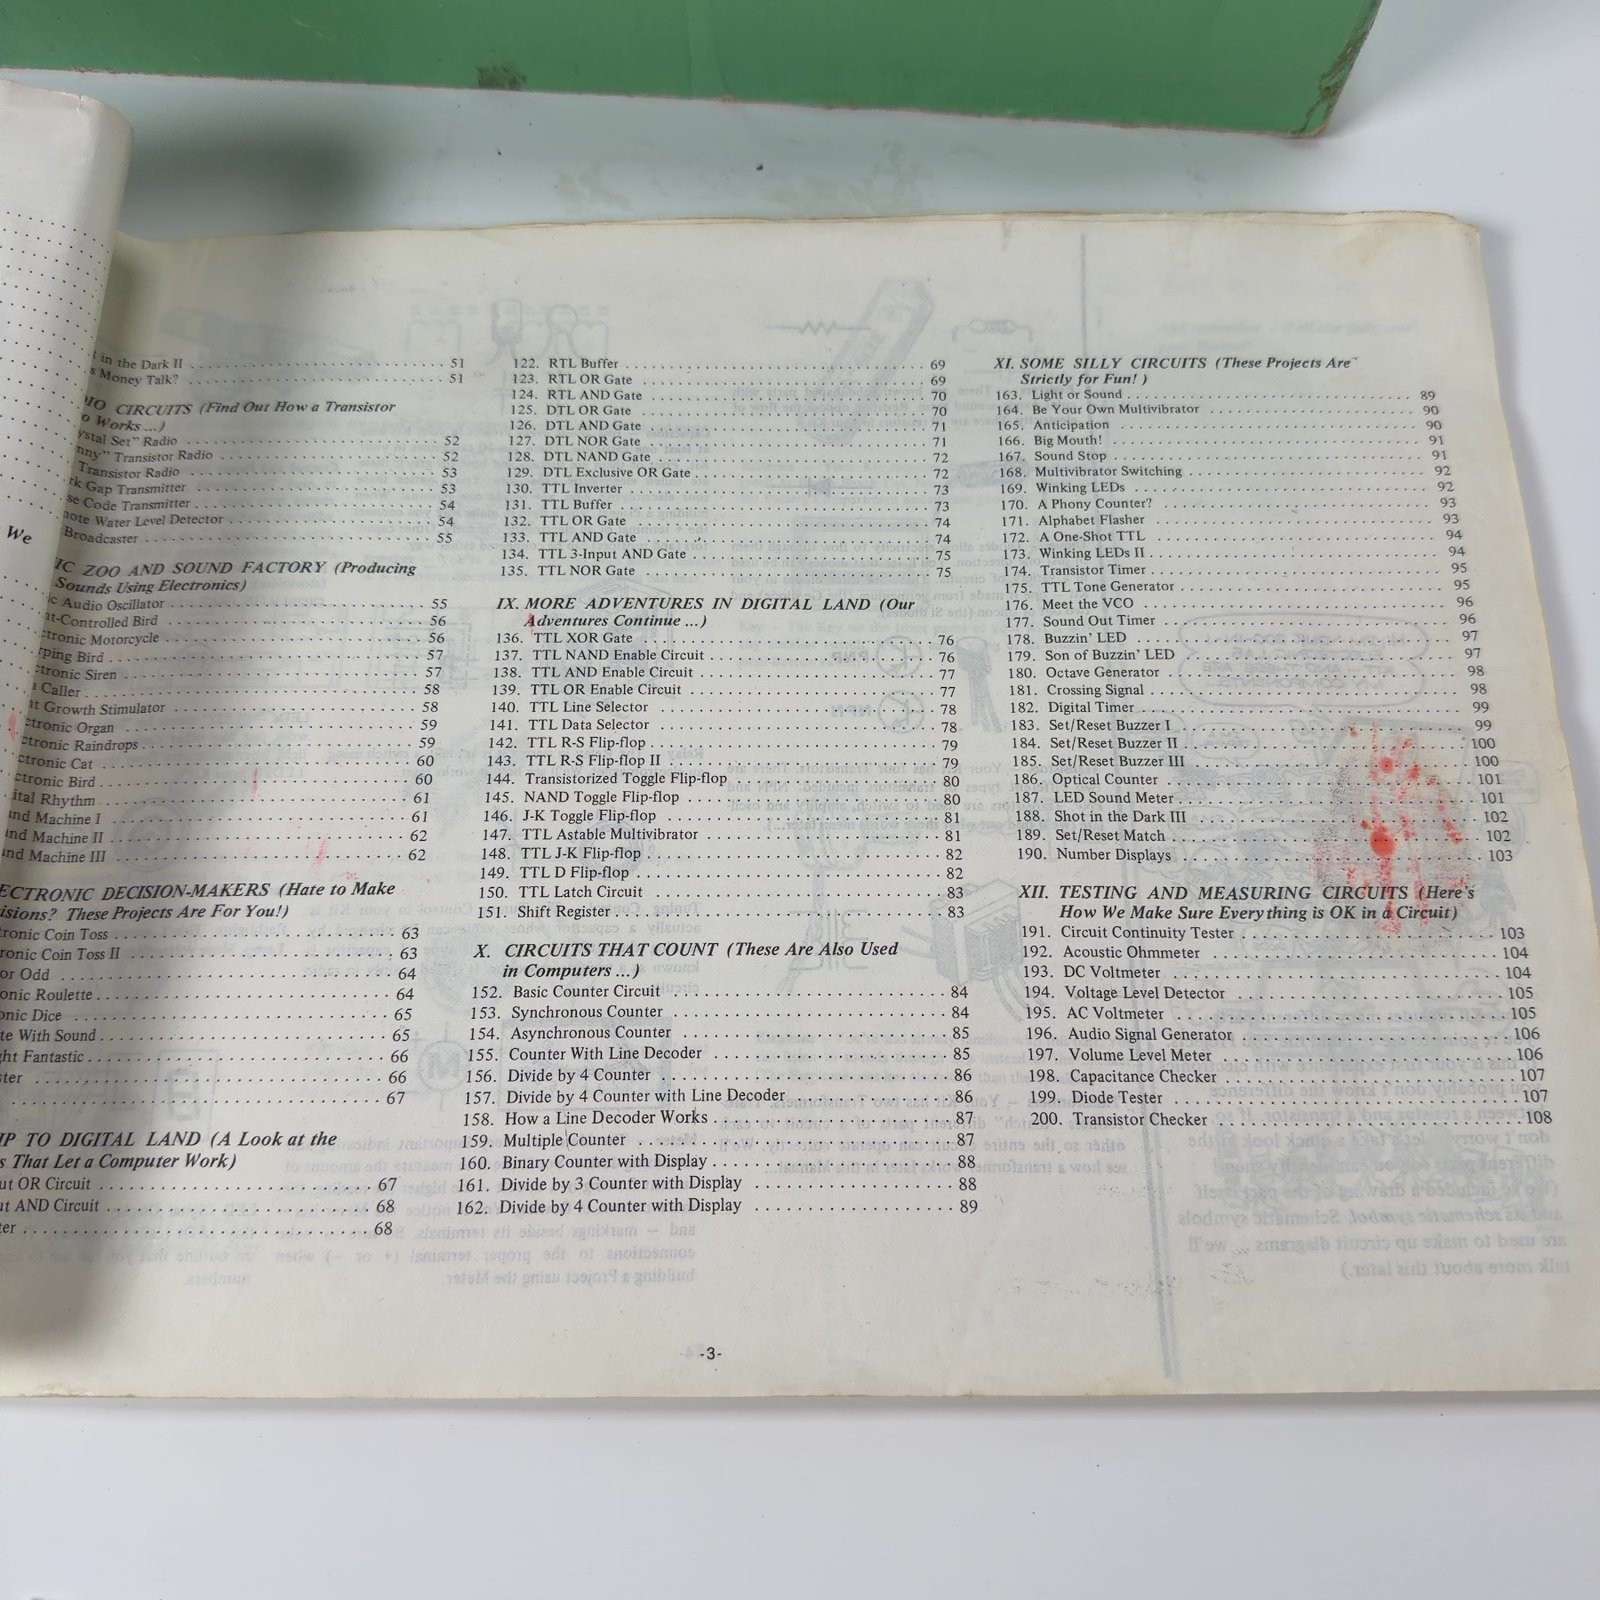 We
in the Dark II 51
Money Talk? 51
CIRCUITS (Find Out How a Transistor
Works...)
Set" Radio 52
Transistor Radio 52
Transistor Radio 53
Gap Transmitter 53
Code Transmitter 54
Water Level Detector 54
Broadcaster 55
ZOO AND SOUND FACTORY (Producing
Sounds Using Electronics)
Audio Oscillator 55
-Controlled Bird 56
Motorcycle 56
Bird 57
Siren 57
Caller 58
Growth Stimulator 58
Organ 59
Raindrops 59
Cat 60
Bird 60
Rhythm 61
Machine I 61
Machine II 62
Machine III 62
DECISION-MAKERS (Hate to Make
These Projects Are For You!)
Coin Toss 63
Coin Toss II 63
or Odd 64
Roulette 64
Dice 65
With Sound 65
Fantastic 66
66
67
TO DIGITAL LAND (A Look at the
That Let a Computer Work)
OR Circuit 67
AND Circuit 68
68
122. RTL Buffer 69
123. RTL OR Gate 69
124. RTL AND Gate 70
125. DTL OR Gate 70
126. DTL AND Gate 71
127. DTL NOR Gate 71
128. DTL NAND Gate 72
129. DTL Exclusive OR Gate 72
130. TTL Inverter 73
131. TTL Buffer 73
132. TTL OR Gate 74
133. TTL AND Gate 74
134. TTL 3-Input AND Gate 75
135. TTL NOR Gate 75
IX. MORE ADVENTURES IN DIGITAL LAND (Our
Adventures Continue...)
136. TTL XOR Gate 76
137. TTL NAND Enable Circuit 76
138. TTL AND Enable Circuit 77
139. TTL OR Enable Circuit 77
140. TTL Line Selector 78
141. TTL Data Selector 78
142. TTL R-S Flip-flop 79
143. TTL R-S Flip-flop II 79
144. Transistorized Toggle Flip-flop 80
145. NAND Toggle Flip-flop 80
146. J-K Toggle Flip-flop 81
147. TTL Astable Multivibrator 81
148. TTL J-K Flip-flop 82
149. TTL D Flip-flop 82
150. TTL Latch Circuit 83
151. Shift Register 83
X. CIRCUITS THAT COUNT (These Are Also Used
in Computers...)
152. Basic Counter Circuit 84
153. Synchronous Counter 84
154. Asynchronous Counter 85
155. Counter With Line Decoder 85
156. Divide by 4 Counter 86
157. Divide by 4 Counter with Line Decoder 86
158. How a Line Decoder Works 87
159. Multiple Counter 87
160. Binary Counter with Display 88
161. Divide by 3 Counter with Display 88
162. Divide by 4 Counter with Display 89
XI. SOME SILLY CIRCUITS (These Projects Are
Strictly for Fun!)
163. Light or Sound 89
164. Be Your Own Multivibrator 90
165. Anticipation 90
166. Big Mouth! 91
167. Sound Stop 91
168. Multivibrator Switching 92
169. Winking LEDs 92
170. A Phony Counter? 93
171. Alphabet Flasher 93
172. A One-Shot TTL 94
173. Winking LEDs II 94
174. Transistor Timer 95
175. TTL Tone Generator 95
176. Meet the VCO 96
177. Sound Out Timer 96
178. Buzzin' LED 97
179. Son of Buzzin' LED 97
180. Octave Generator 98
181. Crossing Signal 98
182. Digital Timer 99
183. Set/Reset Buzzer I 99
184. Set/Reset Buzzer II 100
185. Set/Reset Buzzer III 100
186. Optical Counter 101
187. LED Sound Meter 101
188. Shot in the Dark III 102
189. Set/Reset Match 102
190. Number Displays 103
XII. TESTING AND MEASURING CIRCUITS (Here's
How We Make Sure Everything is OK in a Circuit)
191. Circuit Continuity Tester 103
192. Acoustic Ohmmeter 104
193. DC Voltmeter 104
194. Voltage Level Detector 105
195. AC Voltmeter 105
196. Audio Signal Generator 106
197. Volume Level Meter 106
198. Capacitance Checker 107
199. Diode Tester 107
200. Transistor Checker 108
-3-